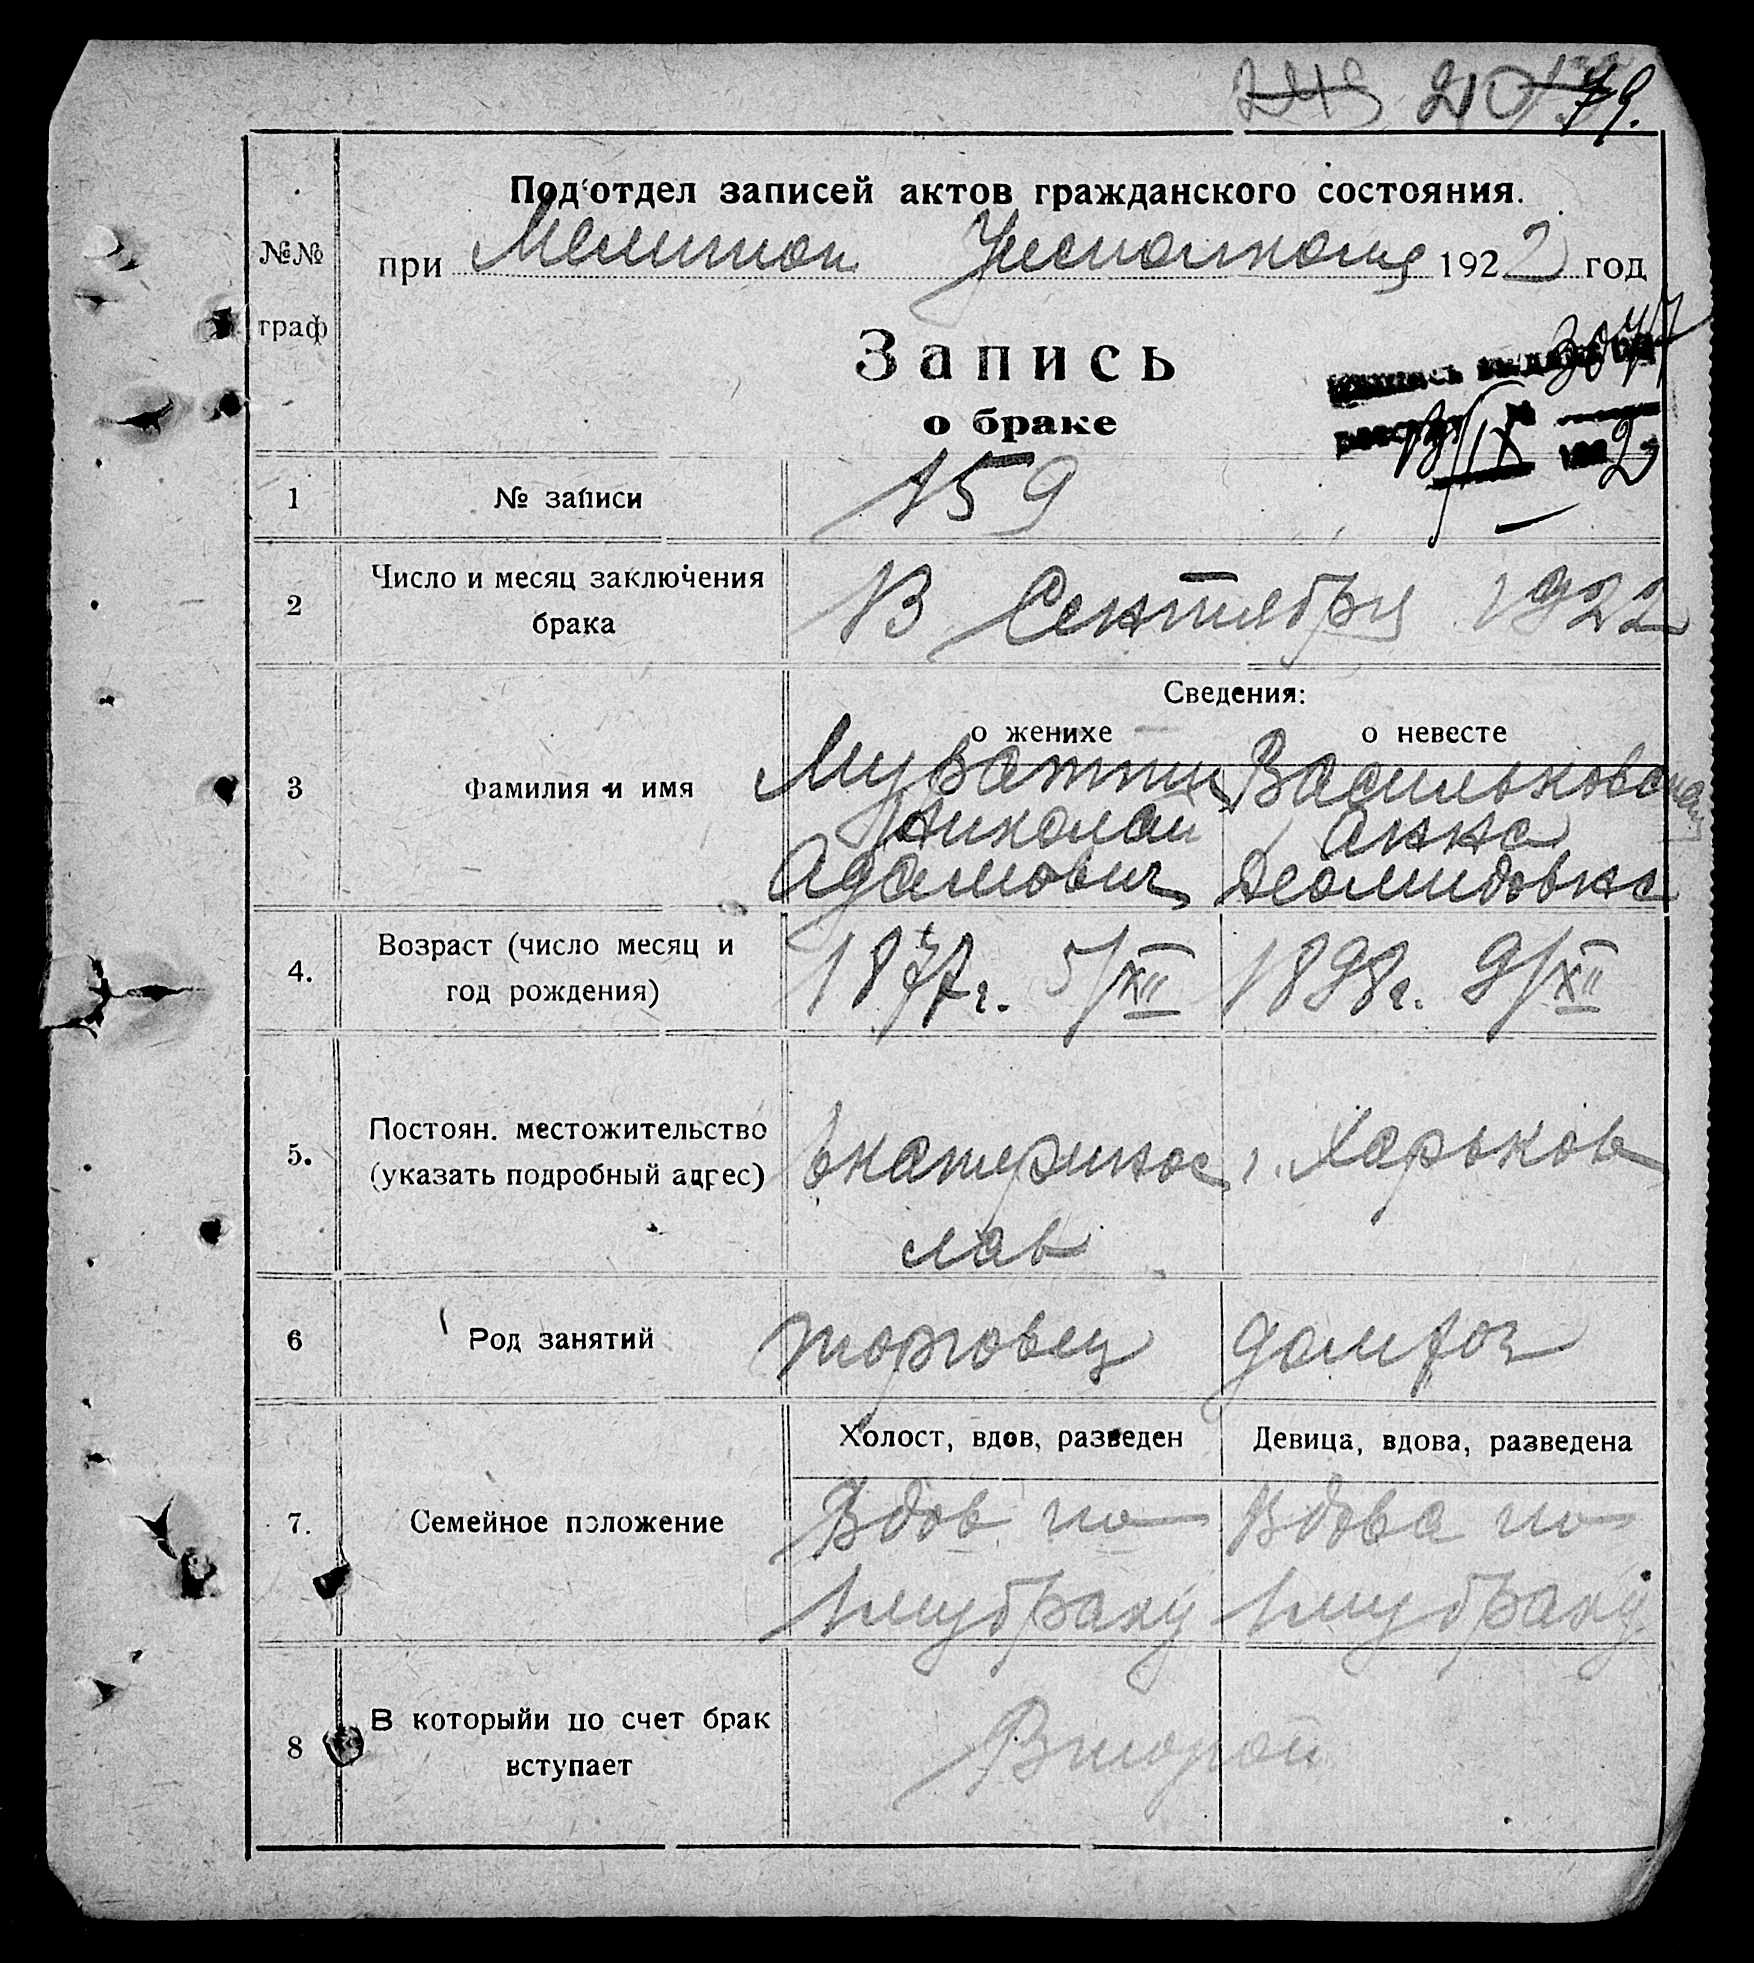 243 210 79.
Под'отдел записей актов гражданского состояния.
№№ граф
при Мелитоп Уисполкома 1922 год
Запись
о браке
3047
13/IX 1922
1 № записи 159
2 Число и месяц заключения брака 13 Сентября 1922
Сведения:
о женихе о невесте
3 Фамилия и имя
Васильковская
Николай Анна
Адамович Деомидовна
4. Возраст (число месяц и год рождения) 1877г. 5/XII 1898г. 9/XII
5. Постоян. местожительство (указать подробный адрес) Екатеринос г. Харьков
лав
6 Род занятий торговец домхоз
Холост, вдов, разведен Девица, вдова, разведена
7. Семейное положение Вдов по Вдова по
1му браку 1му браку
8 В которыйи по счет брак вступает Второй